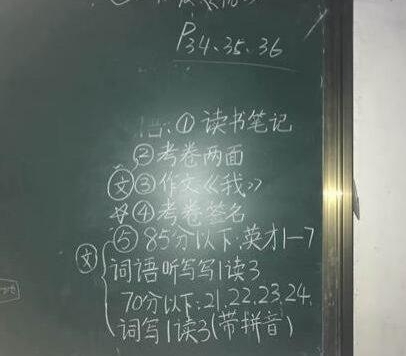 P34、35、36
①读书笔记
②考卷两面
文③作文《我》
☆④考卷签名
文⑤85分以下:英才1-7
词语听写写1读3
70分以下:21.22.23.24.
词写1读3(带拼音)